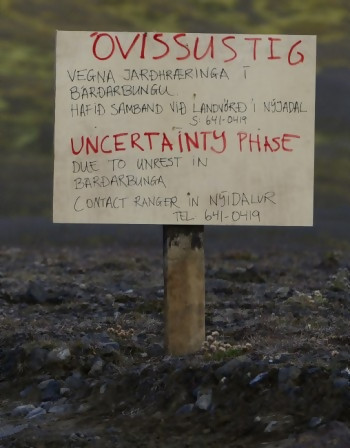 ÓVISSUSTIG
VEGNA JARÐHRÆRINGA Í
BÁRÐARBUNGU
HAFIÐ SAMBAND VIÐ LANDVÖRÐ Í NÝJADAL
S: 641-0419
UNCERTAINTY PHASE
DUE TO UNREST IN
BARÐARBUNGA
CONTACT RANGER IN NÝIDALUR
TEL 641-0419